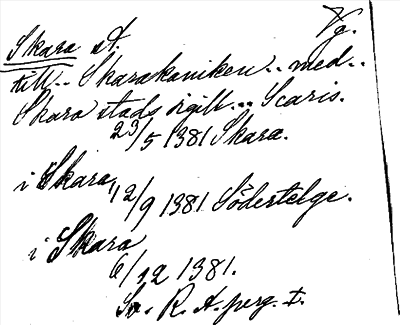 Skara st. Vg.
till.. Skarakaniken.. med..
Skara stads sigill... Scaris.
23/5 1381 Skara.
i Skara
12/9 1381 Södertelge.
i Skara
6/12 1381.
Sv. R. A. perg.